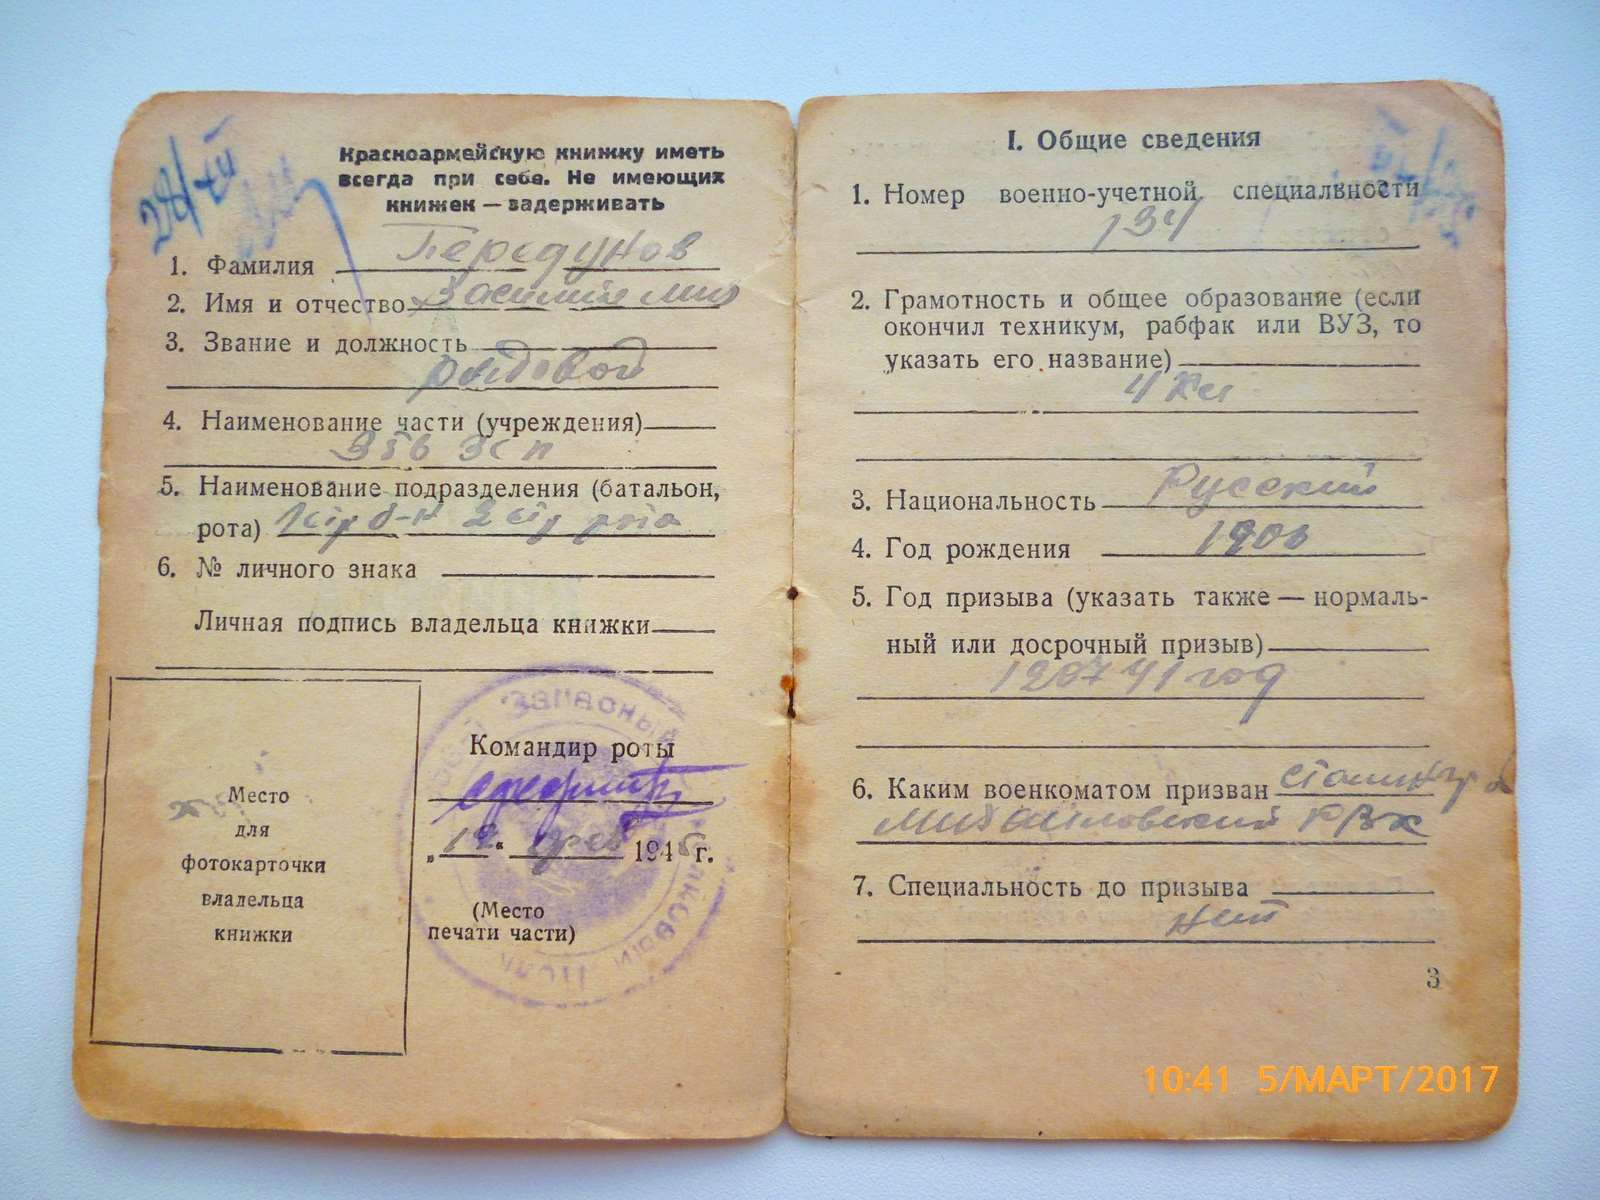 28/VII
Красноармейскую книжку иметь
всегда при себе. Не имеющих
книжек — задерживать
1. Фамилия Передунов
2. Имя и отчество Василий Мих
3. Звание и должность
рядовой
4. Наименование части (учреждения)
356 зсп
5. Наименование подразделения (батальон,
рота) 1 стр б-н 2 стр рота
6. № личного знака
Личная подпись владельца книжки
Место
для
фотокарточки
владельца
книжки
Командир роты
„12" фев 1945 г.
(Место
печати части)
Запасный Стрелковый Полк
I. Общие сведения
1. Номер военно-учетной специальности
134
2. Грамотность и общее образование (если
окончил техникум, рабфак или ВУЗ, то
указать его название)
4 кл
3. Национальность Русский
4. Год рождения 1906
5. Год призыва (указать также — нормаль-
ный или досрочный призыв)
41 год
6. Каким военкоматом призван Сталингр
Михайловский РВК
7. Специальность до призыва
нет
3
10:41 5/МАРТ/2017